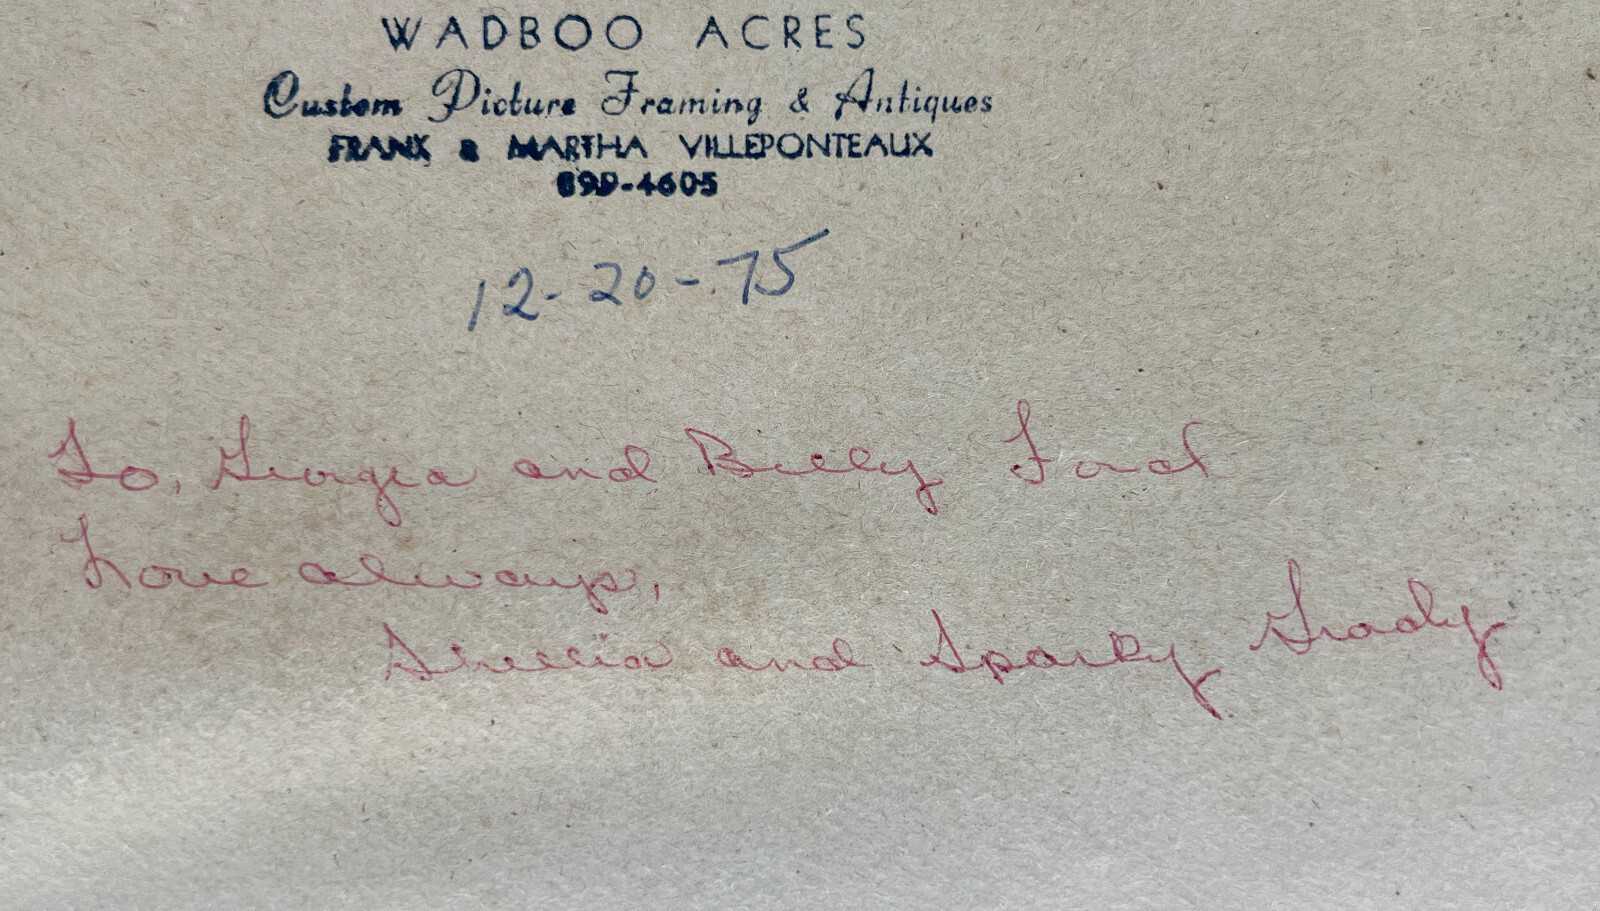 WADBOO ACRES
Custom Picture Framing & Antiques
FRANK & MARTHA VILLEPONTEAUX
899-4605
12-20-75
To, Georgia and Billy Ford
Love always,
and Sparky Grady